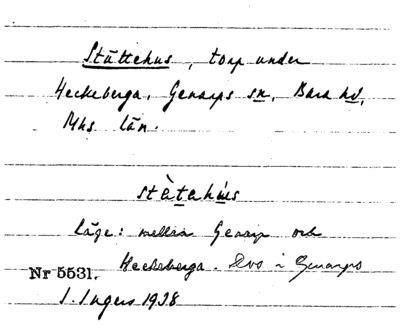 Stättehus, torp under
Heckeberga, Genarps sn, Bara hd,
Mhs län.
stètahús
läge: mellan Genarp och
Heckeberga. Dvs i Genarps
Nr 5531.
I. Ingers 1938